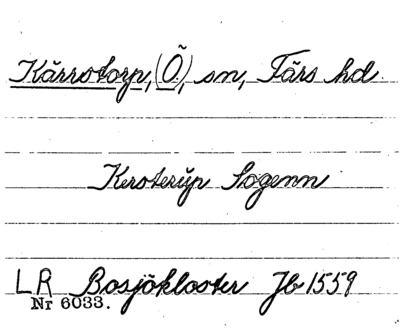 Kärrstorp, (Ö.) sn, Färs hd.
Kersterüp Sogenn
LR Bosjökloster Jb 1559
Nr 6033.